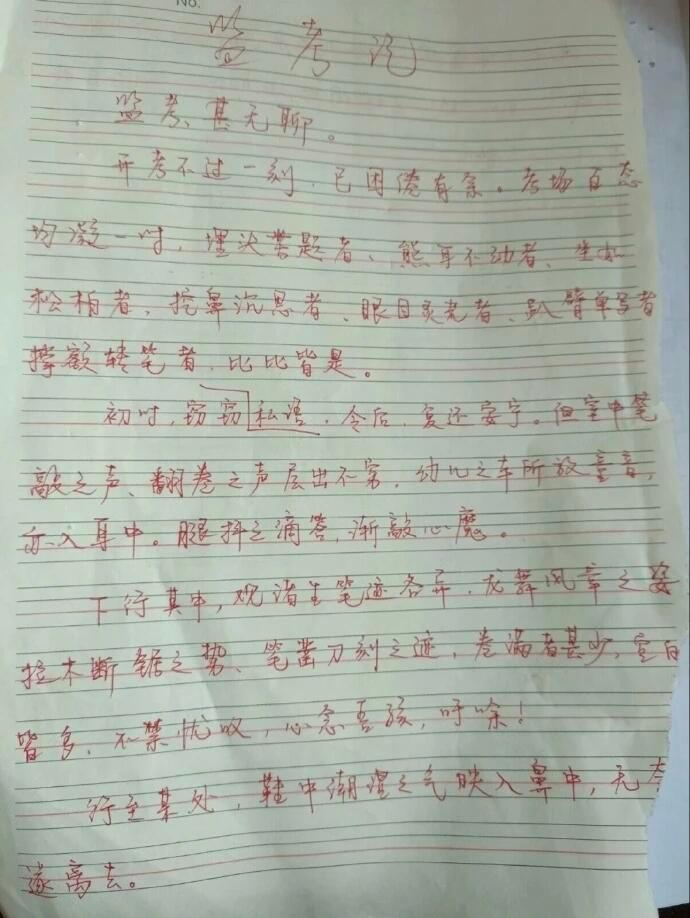 No.
监考记
监考、甚无聊。
开考不过一刻，已困倦有余。考场百态
均凝一时，埋头答题者、熊耳不动者、坐如
松柏者，挖鼻沉思者、眼目灵光者、趴臂单写者
撑额转笔者，比比皆是。
初时，窃窃私语，令后，复还安宁。但室中笔
敲之声、翻卷之声层出不穷，幼儿之车所放童音，
亦入耳中。腿抖之滴答，渐敲心魔。
下行其中，观诸生笔迹各异，龙舞风章之姿
拉木断锯之势、笔凿刀刻之迹，卷满者甚少，空白
皆多，不禁忧叹，心念吾孩，呼唏！
行至某处，鞋中潮湿之气映入鼻中，无奈
遂离去。